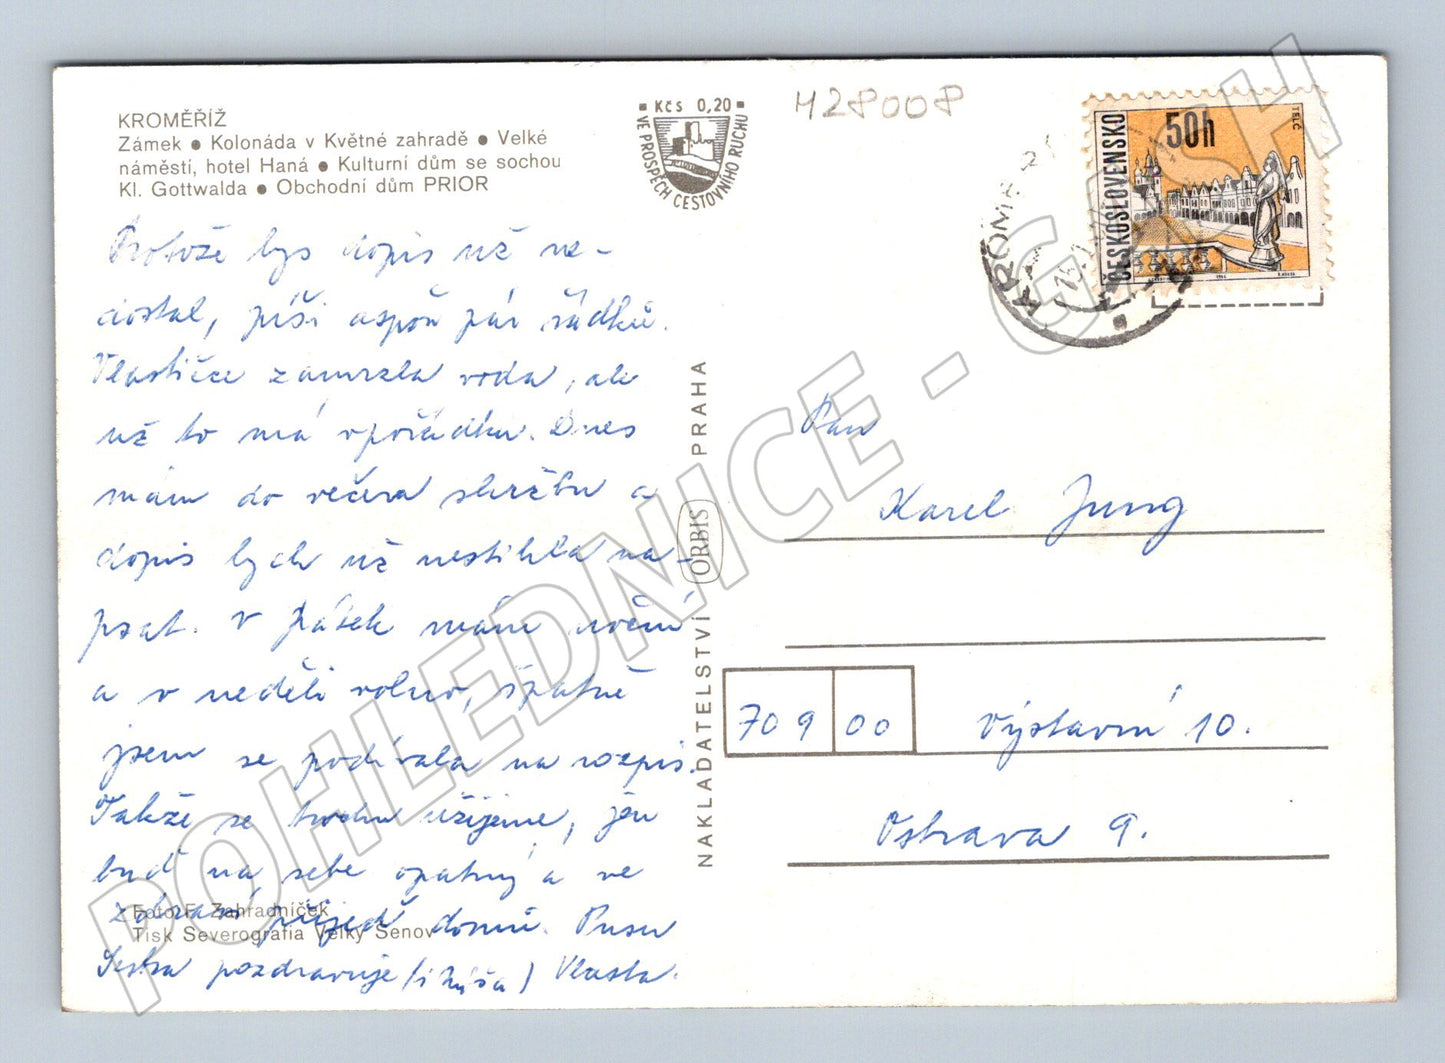 KROMĚŘÍŽ
Zámek ● Kolonáda v Květné zahradě ● Velké
náměstí, hotel Haná ● Kulturní dům se sochou
Kl. Gottwalda ● Obchodní dům PRIOR
Kčs 0,20
VE PROSPĚCH CESTOVNÍHO RUCHU
428008
ČESKOSLOVENSKO
50h
TELČ
Protože bys dopis už ne-
dostal, píši aspoň pár řádků.
Vlastičce zamrzla voda, ale
už to má v pořádku. Dnes
mám do večera službu a
dopis bych už nestihla na-
psat. V pátek mám noční
a v neděli volno, špatně
jsem se podívala na rozpis.
Takže se trochu užijeme, jen
buď na sebe opatrný a ve
zdraví přijeď domů. Pusu
Foto F. Zahradníček
Tisk Severografia Velký Šenov
pozdravuje (i Myša) Vlasta.
NAKLADATELSTVÍ ORBIS PRAHA
Pan
Karel Jung
709 00 Výstavní 10.
Ostrava 9.
POHLEDNICE - GASH